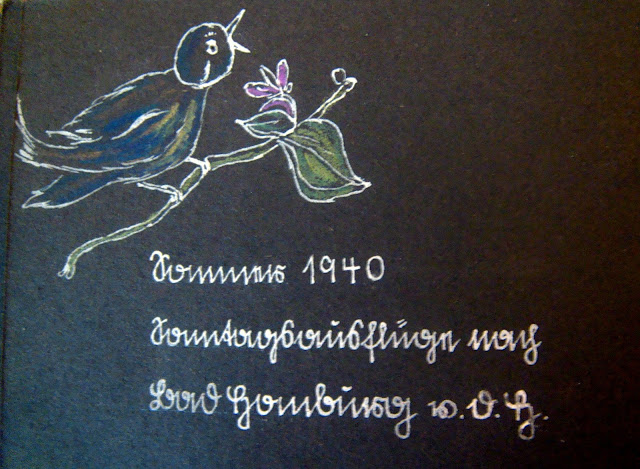 Sommer 1940
Sonntagsausflüge nach
Bad Homburg v. d. H.